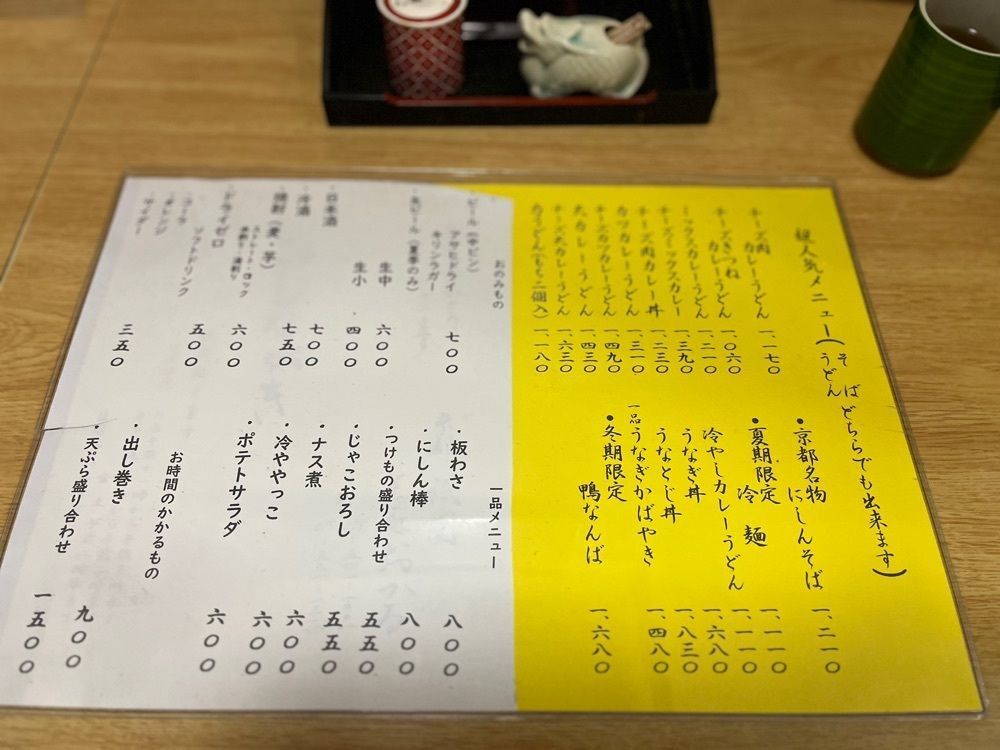 超人気メニュー(そば うどん どちらでも出来ます)
チーズ肉カレーうどん 一、一七〇
チーズきつねカレーうどん 一、〇六〇
ミックスカレーうどん 一、二一〇
チーズミックスカレー 一、三九〇
チーズ肉カレー丼 一、二三〇
カツカレーうどん 一、三一〇
チーズカツカレーうどん 一、四九〇
大カレーうどん 一、四三〇
チーズ大カレーうどん 一、六三〇
力うどん(もち二個入) 一、一八〇
•京都名物
にしんそば 一、二一〇
•夏期限定
冷麺 一、一一〇
冷やしカレーうどん 一、一一〇
うなぎ丼 一、六八〇
うなとじ丼 一、八三〇
一品うなぎかばやき 一、四八〇
•冬期限定
鴨なんば 一、六八〇
おのみもの
・ビール(中ビン)
アサヒドライ
キリンラガー 七〇〇
・生ビール(夏季のみ)
生中 六〇〇
生小 四〇〇
・日本酒 七〇〇
・冷酒 七五〇
・焼酎(麦・芋)
ストレート・ロック
水割り・湯割り 六〇〇
・ドライゼロ 五〇〇
ソフトドリンク
・コーラ
・オレンジ
・サイダー 三五〇
一品メニュー
・板わさ 八〇〇
・にしん棒 八〇〇
・つけもの盛り合わせ 五五〇
・じゃこおろし 五五〇
・ナス煮 六〇〇
・冷ややっこ 六〇〇
・ポテトサラダ 六〇〇
お時間のかかるもの
・出し巻き 九〇〇
・天ぷら盛り合わせ 一五〇〇